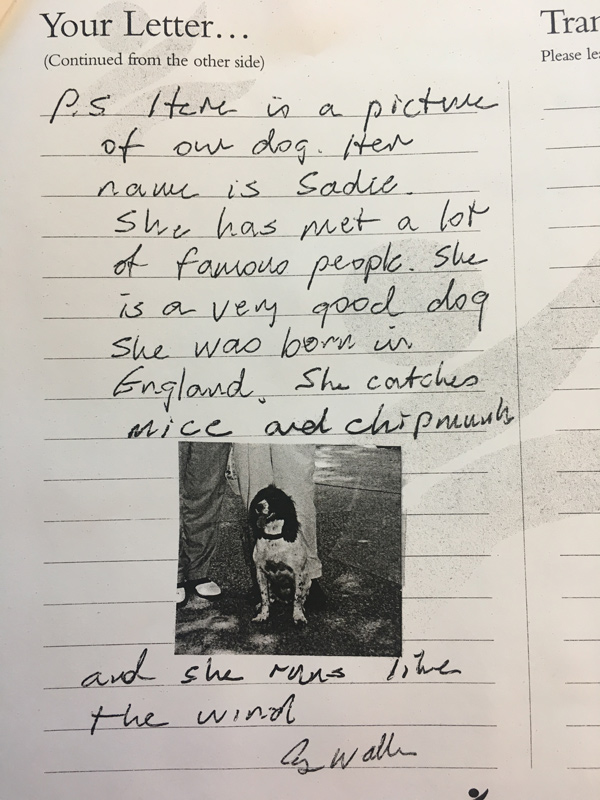 Your Letter…
(Continued from the other side)
Tran
Please lea
P.S Here is a picture
of our dog. Her
name is Sadie.
She has met a lot
of famous people. She
is a very good dog
She was born in
England. She catches
mice and chipmunks
and she runs like
the wind
G Walker